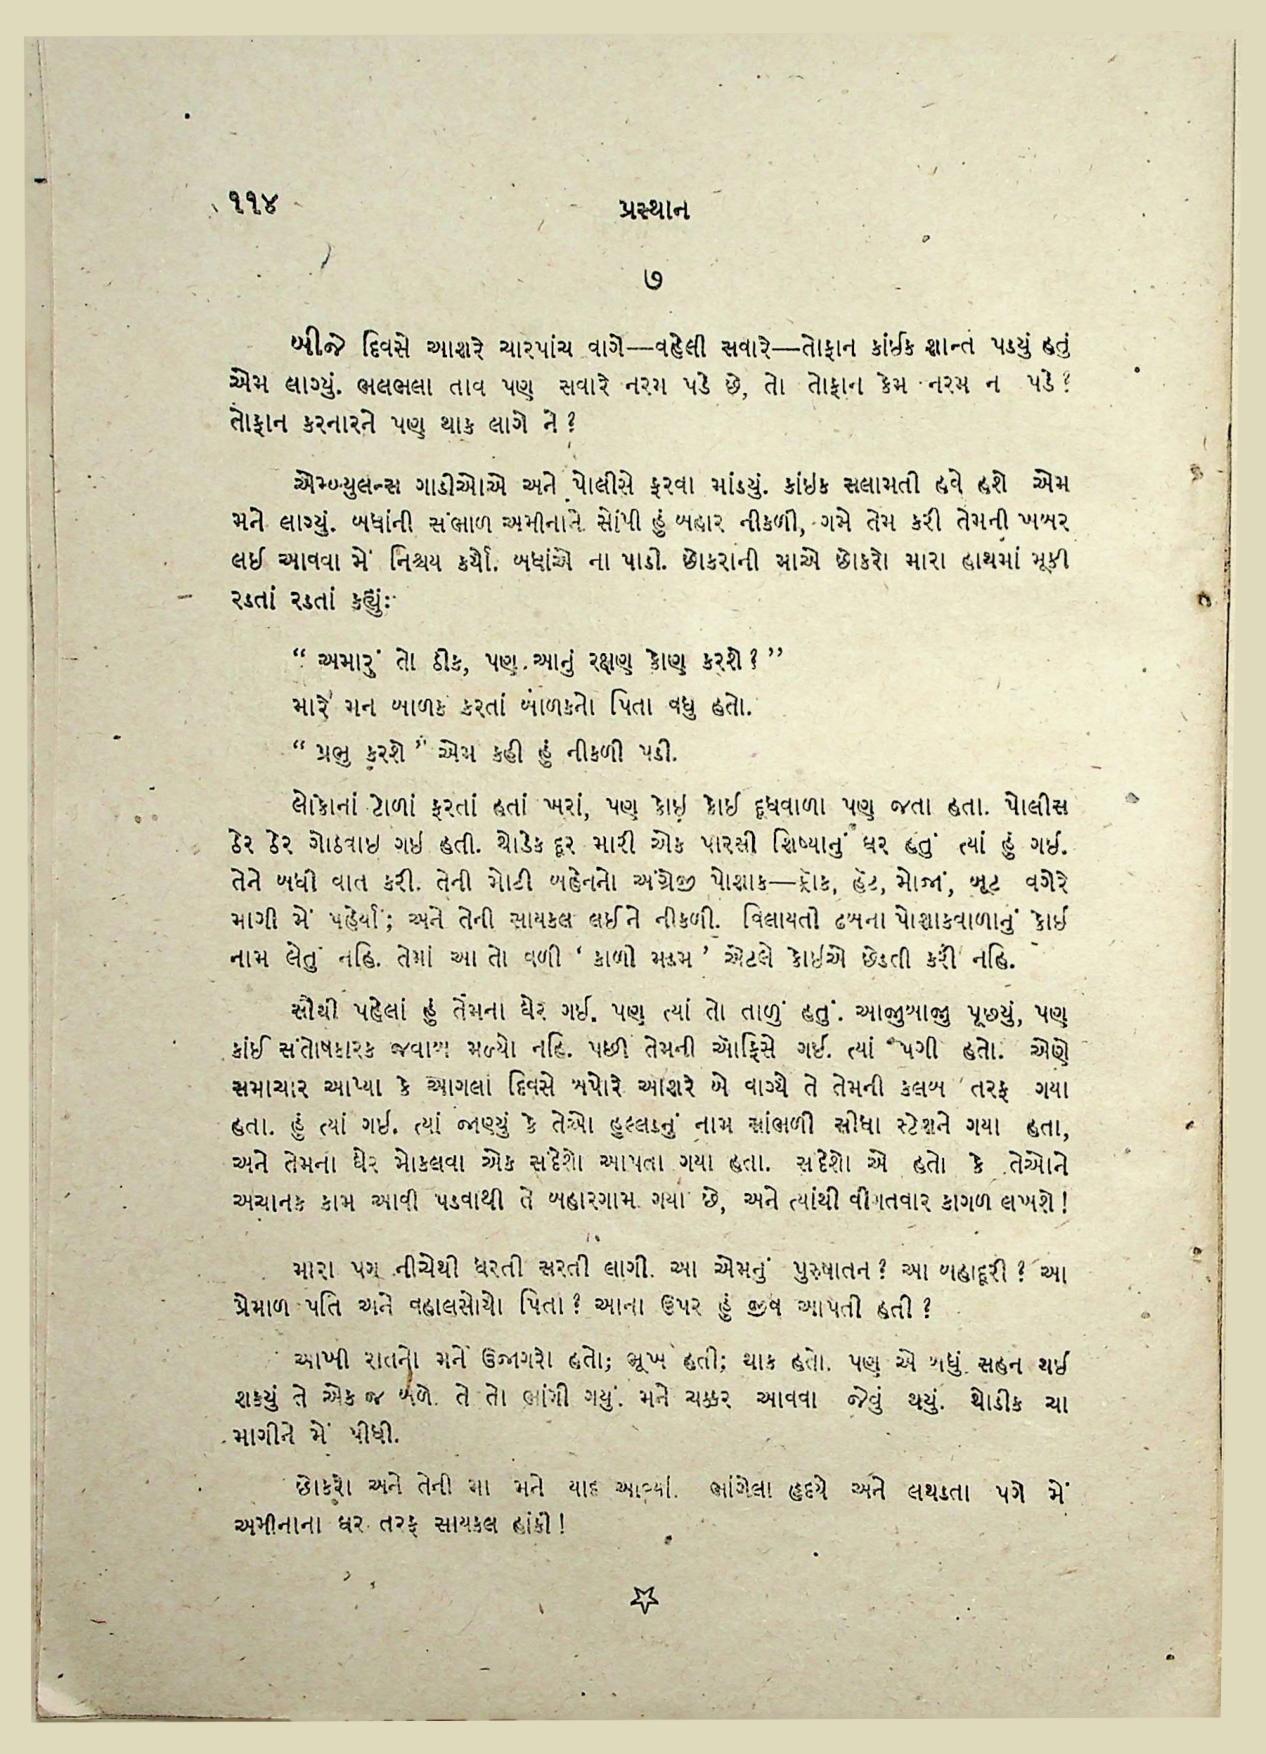 ૧૧૪
પ્રસ્થાન
૭
બીજે દિવસે આશરે ચારપાંચ વાગે—વહેલી સવારે—તોફાન કાંઈક શાન્ત પડ્યું હતું
એમ લાગ્યું. ભલભલા તાવ પણ સવારે નરમ પડે છે, તો તોફાન કેમ નરમ ન પડે?
તોફાન કરનારને પણ થાક લાગે ને?
એમ્બ્યુલન્સ ગાડીઓએ અને પોલીસે ફરવા માંડયું. કાંઇક સલામતી હવે હશે એમ
મને લાગ્યું. બધાંની સંભાળ અમીનાને સોંપી હું બહાર નીકળી, ગમે તેમ કરી તેમની ખબર
લઈ આવવા મેં નિશ્ચય કર્યો. બધાંએ ના પાડી. છોકરાની માએ છોકરો મારા હાથમાં મૂકી
રડતાં રડતાં કહ્યું:
“ અમારું તો ઠીક, પણ આનું રક્ષણ કોણ કરશે? ”
મારે મન બાળક કરતાં બાળકનો પિતા વધુ હતો.
“ પ્રભુ કરશે ” એમ કહી હું નીકળી પડી.
લોકોનાં ટોળાં ફરતાં હતાં ખરાં, પણ કોઇ કોઈ દૂધવાળા પણ જતા હતા. પોલીસ
ઠેર ઠેર ગોઠવાઇ ગઇ હતી. થોડેક દૂર મારી એક પારસી શિષ્યાનું ઘર હતું ત્યાં હું ગઇ.
તેને બધી વાત કરી. તેની મોટી બહેનનો અંગ્રેજી પોશાક—ફ્રૉક, હૅટ, મોજાં, બૂટ વગેરે
માગી મેં પહેર્યાં; અને તેની સાયકલ લઈને નીકળી. વિલાયતી ઢબના પોશાકવાળાનું કોઇ
નામ લેતું નહિ. તેમાં આ તો વળી ‘ કાળી મડમ ’ એટલે કોઇએ છેડતી કરી નહિ.
સૌથી પહેલાં હું તેમના ઘેર ગઇ. પણ ત્યાં તો તાળું હતું. આજુબાજુ પૂછ્યું, પણ
કાંઈ સંતોષકારક જવાબ મળ્યો નહિ. પછી તેમની ઑફિસે ગઇ. ત્યાં પગી હતો. એણે
સમાચાર આપ્યા કે આગલા દિવસે બપોરે આશરે બે વાગ્યે તે તેમની કલબ તરફ ગયા
હતા. હું ત્યાં ગઇ. ત્યાં જાણ્યું કે તેઓ હુલ્લડનું નામ સાંભળી સીધા સ્ટેશને ગયા હતા,
અને તેમના ઘેર મોકલવા એક સંદેશો આપતા ગયા હતા. સંદેશો એ હતો કે તેઓને
અચાનક કામ આવી પડવાથી તે બહારગામ ગયા છે, અને ત્યાંથી વીગતવાર કાગળ લખશે!
મારા પગ નીચેથી ધરતી સરતી લાગી. આ એમનું પુરુષાતન? આ બહાદૂરી? આ
પ્રેમાળ પતિ અને વહાલસોયો પિતા? આના ઉપર હું જીવ આપતી હતી?
આખી રાતનો મને ઉજાગરો હતો; ભૂખ હતી; થાક હતો. પણ એ બધું સહન થઈ
શકયું તે એક જ બળે. તે તો ભાંગી ગયું. મને ચક્કર આવવા જેવું થયું. થોડીક ચા
માગીને મેં પીધી.
છોકરો અને તેની મા મને યાદ આવ્યાં. ભાંગેલા હૃદયે અને લથડતા પગે મેં
અમીનાના ઘર તરફ સાયકલ હાંકી!